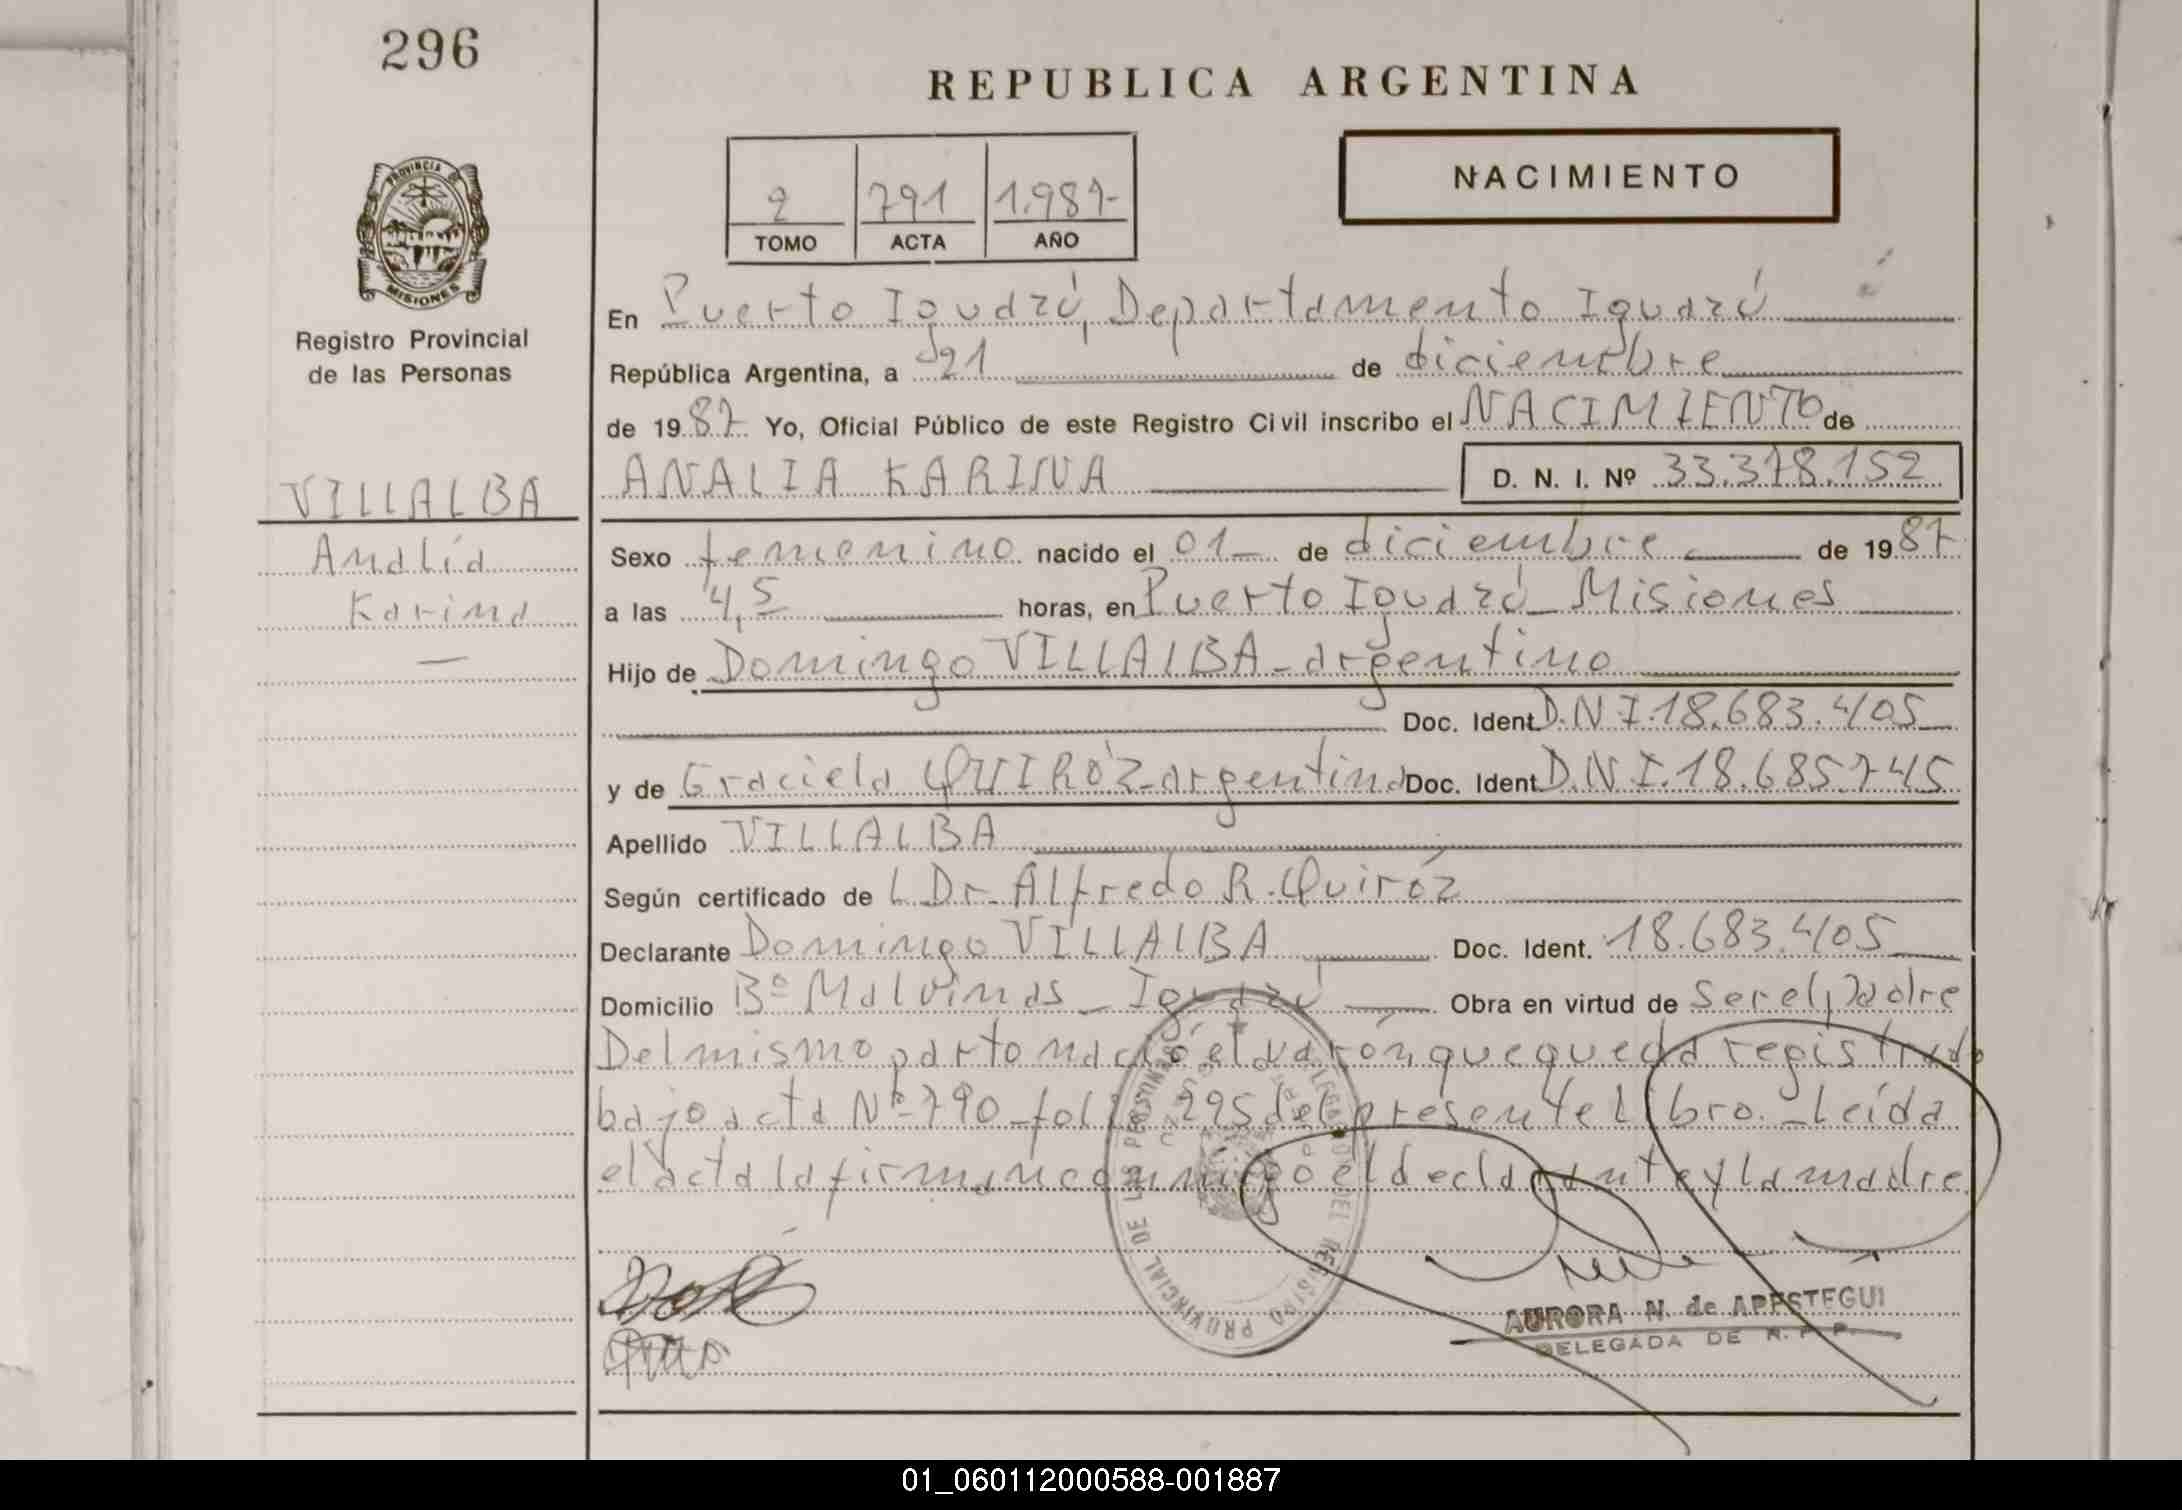 296
REPUBLICA ARGENTINA
NACIMIENTO
2 791 1.987-
TOMO ACTA AÑO
PROVINCIA DE
MISIONES
Registro Provincial
de las Personas
VILLALBA
Analía
Karina
En Puerto Iguazú, Departamento Iguazú
República Argentina, a 21 de diciembre
de 1987 Yo, Oficial Público de este Registro Civil inscribo el NACIMIENTO de
ANALIA KARINA D. N. I. Nº 33.378.152
Sexo femenino nacido el 01 de diciembre de 1987
a las 4,5 horas, en Puerto Iguazú - Misiones
Hijo de Domingo VILLALBA - argentino
Doc. Ident D.N.I. 18.683.405
y de Graciela QUIRÓZ - argentina Doc. Ident D.N.I. 18.685.745
Apellido VILLALBA
Según certificado de L Dr. Alfredo R. Quiróz
Declarante Domingo VILLALBA Doc. Ident. 18.683.405
Domicilio Bº Malvinas - Iguazú Obra en virtud de ser el padre
Del mismo parto nació el varón que queda registrado
bajo acta Nº 790 - folio 295 del presente libro. - Leída
el acta la firman conmigo el declarante y la madre.
REGISTRO PROVINCIAL DE LAS PERSONAS
AURORA N. de APESTEGUI
DELEGADA DE R. P. P.
01_060112000588-001887